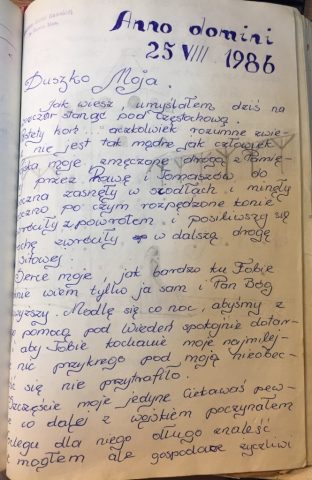 Anno domini
25 VIII 1986
Duszko Moja.
Jak wiesz, umyślałem dziś na
stanąć pod Częstochową.
koń... aczkolwiek rozumne zwie-
nie jest tak mądre jak człowiek
moje, zmęczone drogą z Pamię-
przez Rawę i Tomaszów do
zasnęły w siodłach i minęły
po czym rozpędzone konie
z powrotem i posiliwszy się
zwróciły, w dalszą drogę
Serce moje, jak bardzo ku Tobie
wiem tylko ja sam i Pan Bóg
Modlę się co noc, abyśmy z
pomocą pod Wiedeń spokojnie dotar-
i aby Tobie kochanie moje najmilej-
nic przykrego pod moją nieobec-
się nie przytrafiło.
Szczęście moje jedyne Ciekawaś pew-
co dalej z wojskiem poczynałem
dla niego długo znaleść
mogłem ale gospodarze życzliwi